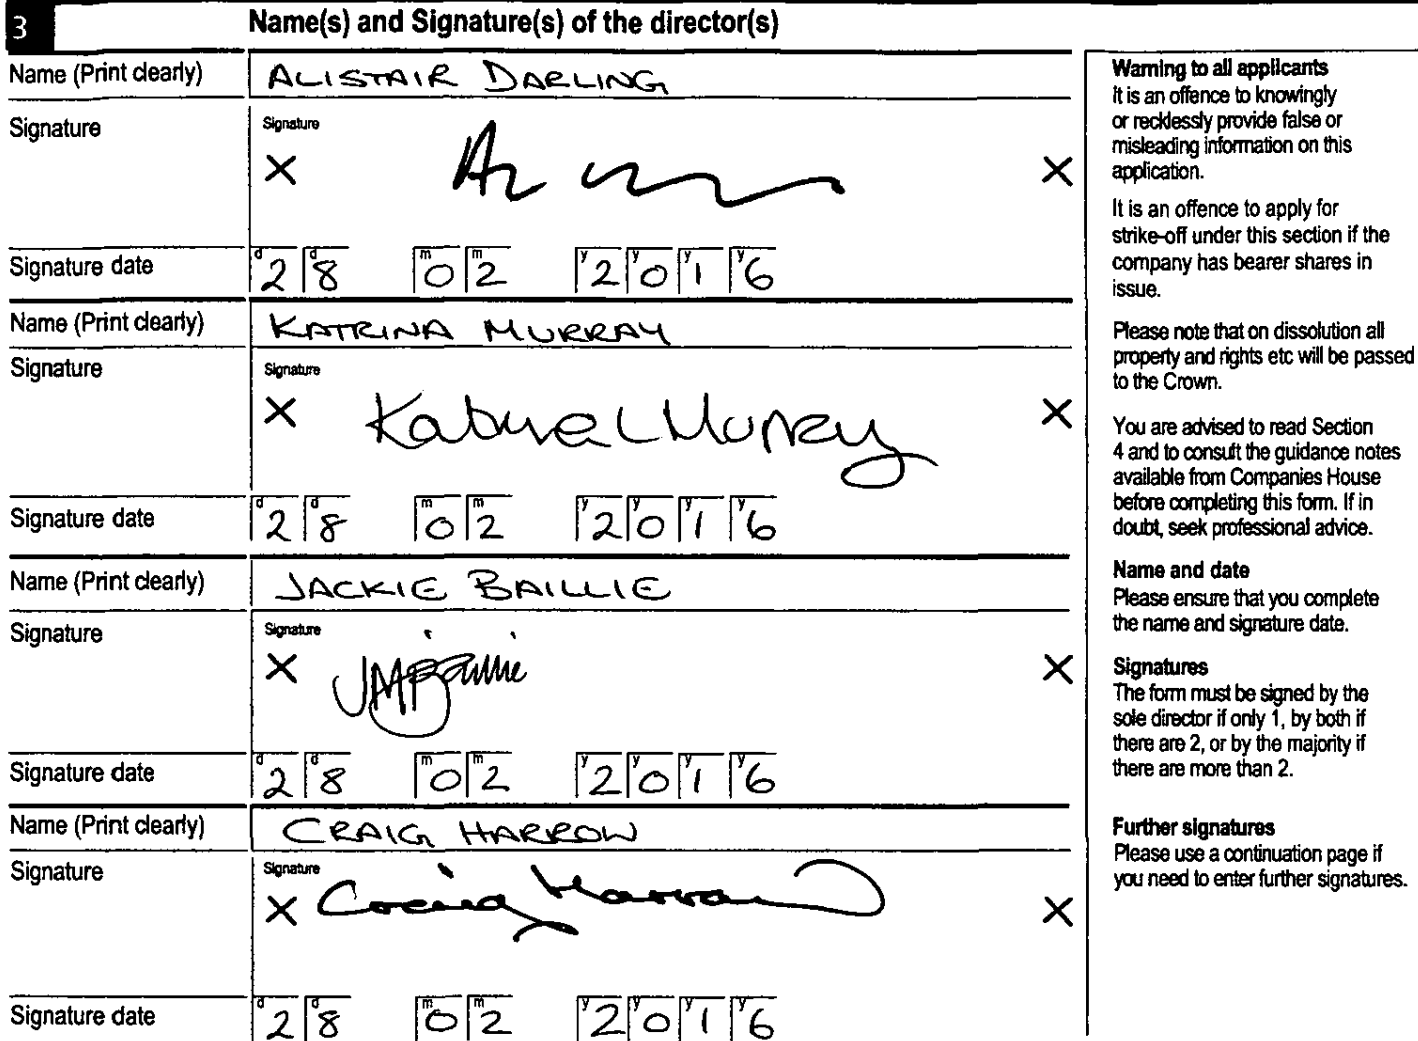 3 Name(s) and Signature(s) of the director(s)
Name (Print clearly) ALISTAIR DARLING
Signature Signature
X X
Signature date d2 d8 m0 m2 y2 y0 y1 y6
Name (Print clearly) KATRINA MURRAY
Signature Signature
X Katrina Murray X
Signature date d2 d8 m0 m2 y2 y0 y1 y6
Name (Print clearly) JACKIE BAILLIE
Signature Signature
X JMBaillie X
Signature date d2 d8 m0 m2 y2 y0 y1 y6
Name (Print clearly) CRAIG HARROW
Signature Signature
X Craig Harrow X
Signature date d2 d8 m0 m2 y2 y0 y1 y6
Warning to all applicants
It is an offence to knowingly
or recklessly provide false or
misleading information on this
application.
It is an offence to apply for
strike-off under this section if the
company has bearer shares in
issue.
Please note that on dissolution all
property and rights etc will be passed
to the Crown.
You are advised to read Section
4 and to consult the guidance notes
available from Companies House
before completing this form. If in
doubt, seek professional advice.
Name and date
Please ensure that you complete
the name and signature date.
Signatures
The form must be signed by the
sole director if only 1, by both if
there are 2, or by the majority if
there are more than 2.
Further signatures
Please use a continuation page if
you need to enter further signatures.